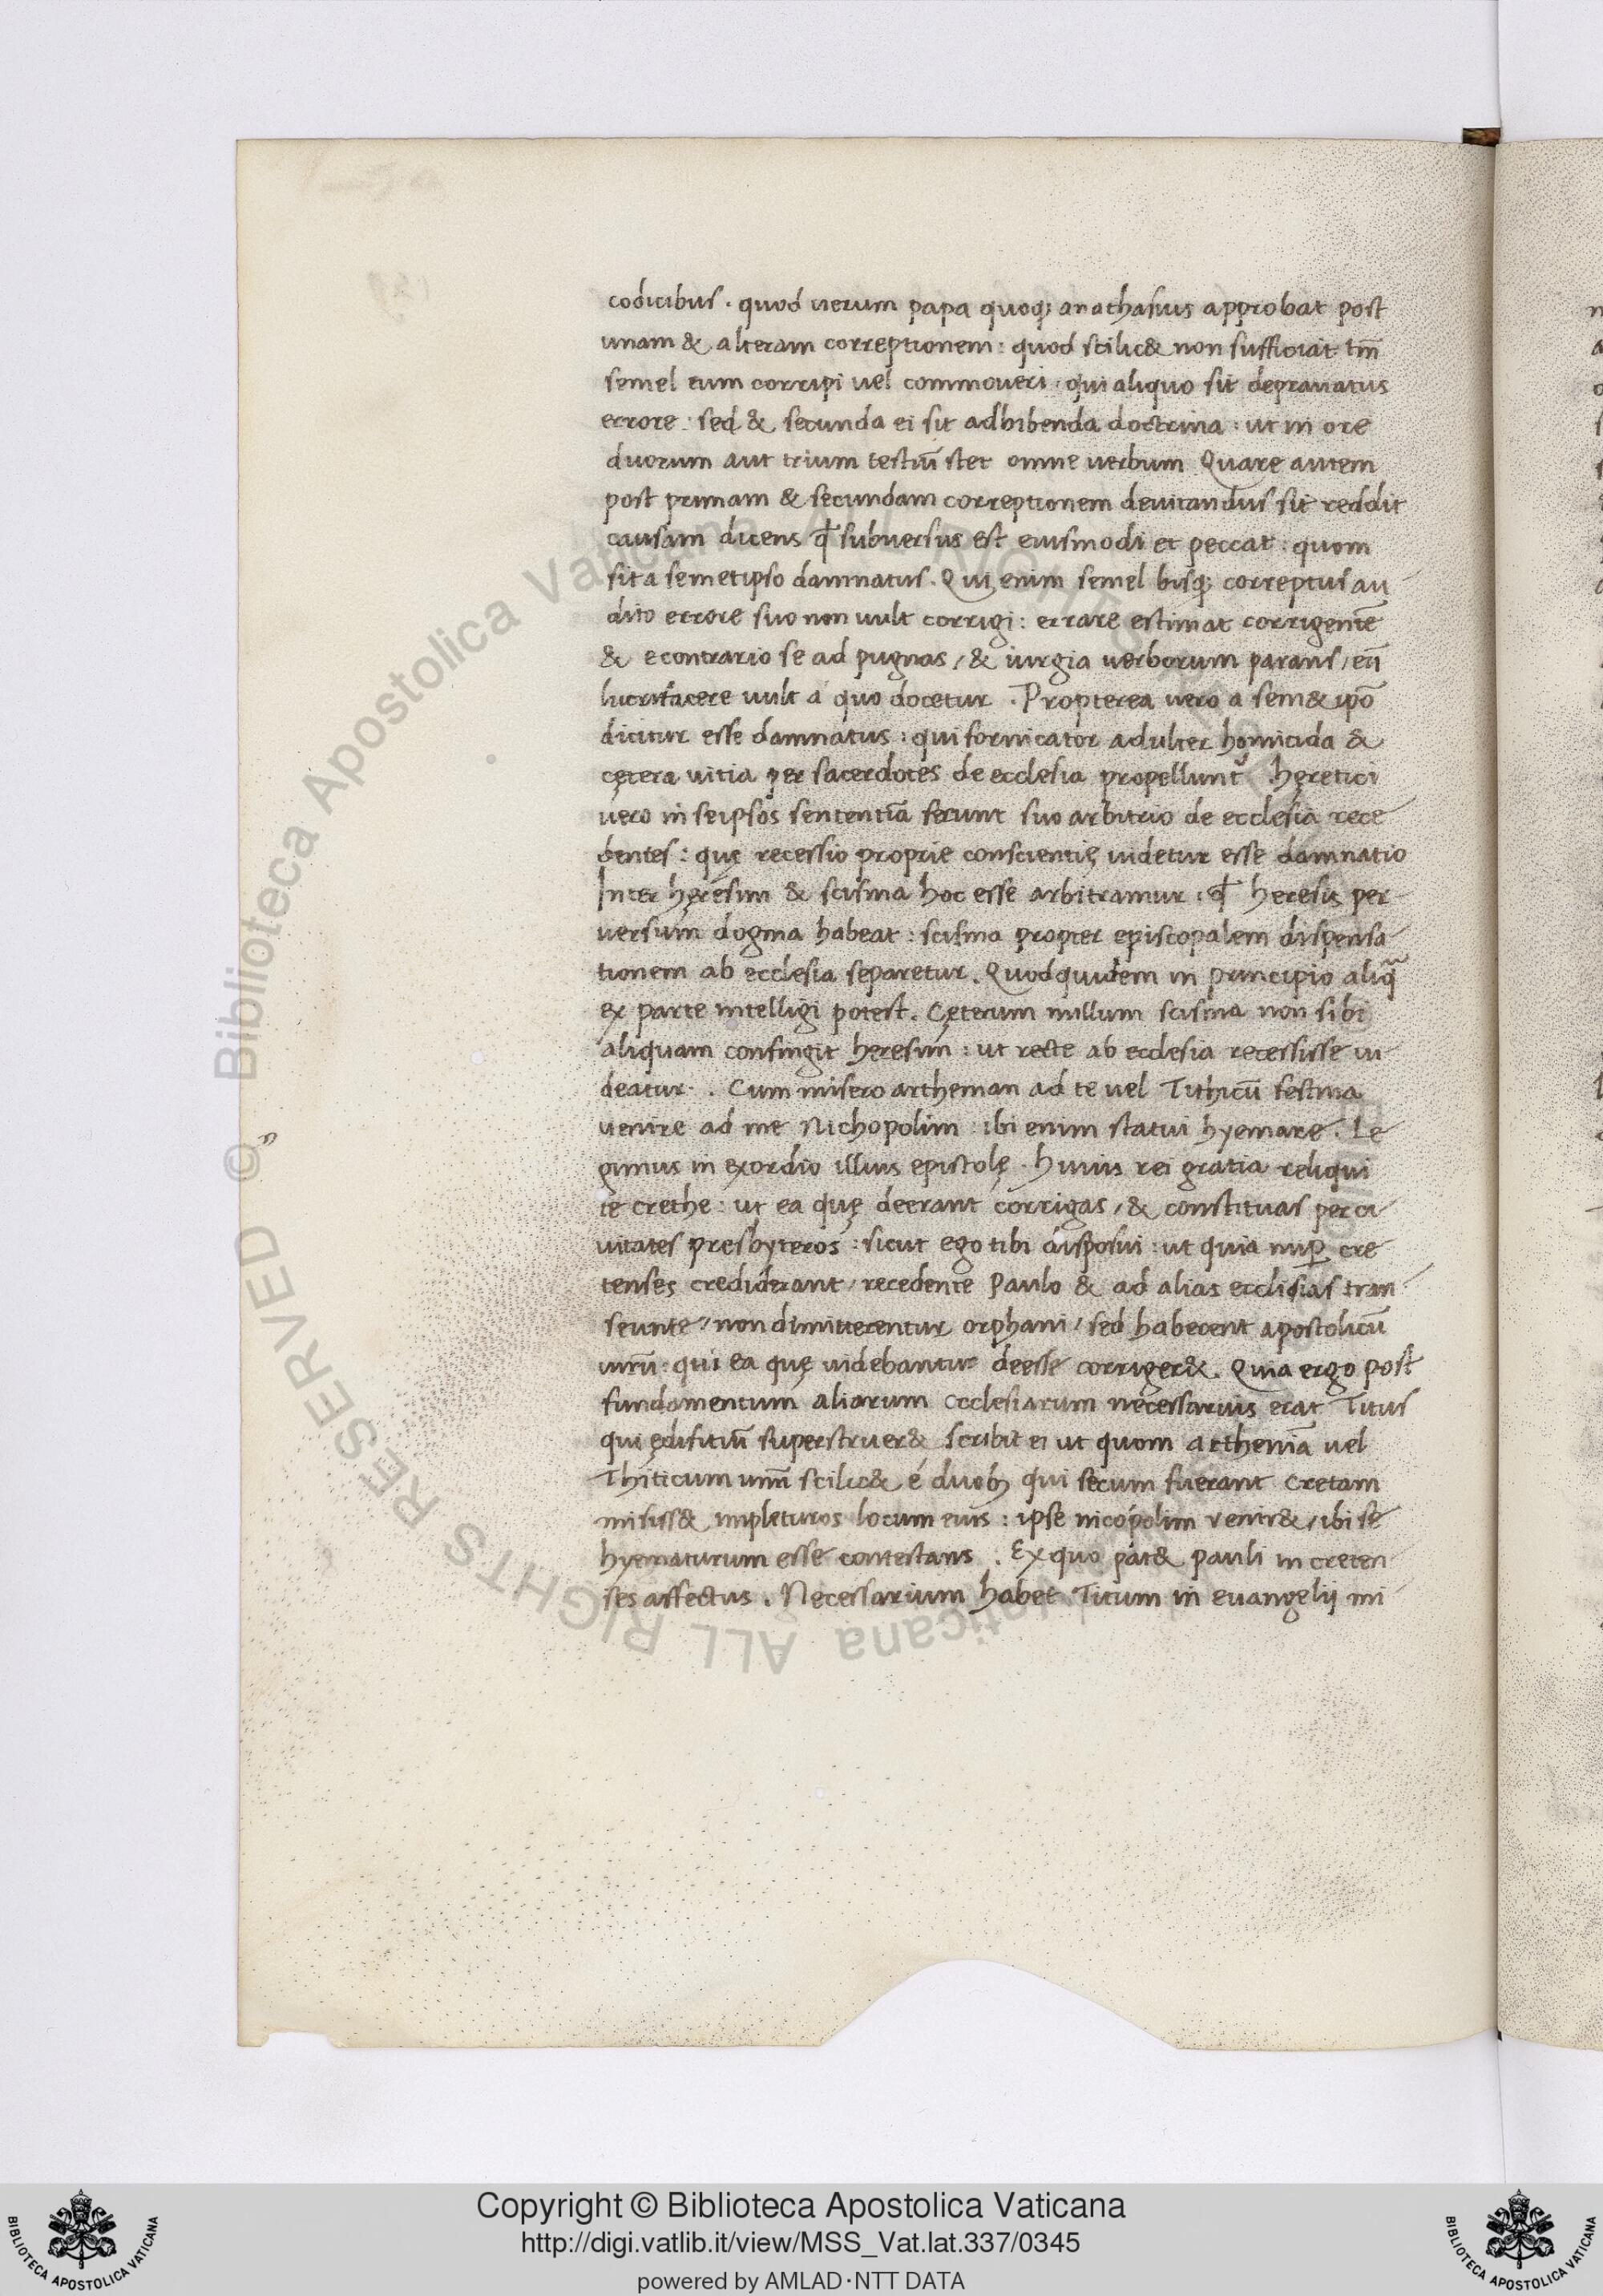 codicibus. quod uerum papa quoq; anathasius approbat post
unam & alteram correptionem: quod scilic& non sufficiat tm̄
semel eum corripi uel commoueri. qui aliquo sit deprauatus
errore. sed & secunda ei sit adhibenda doctrina: ut in ore
duorum aut trium testiū stet omne uerbum Quare autem
post primam & secundam correptionem deuitandus sit reddit
causam dicens ꝙ subuersus est eiusmodi et peccat: quom
sit a semetipso damnatus. Qui enim semel bisq; correptus au
dito errore suo non uult corrigi: errare estimat corrigentē
& econtrario se ad pugnas, & iurgia uerborum parans, eū
lucrifacere uult a quo docetur. Propterea uero a sem& ip̄o
dicitur esse damnatus: qui fornicator adulter homicida &
cętera uitia per sacerdotes de ecclesia propellunt᷒ hęretici
uero in seipsos sententiā ferunt suo arbitrio de ecclesia rece
dentes: quę recessio proprie conscientię uidetur esse damnatio
Inter hęresim & scisma hoc esse arbitramur: ꝙ heresis per
uersum dogma habeat: scisma propter episcopalem dispensa
tionem ab ecclesia separetur. Quod quidem in principio aliq̄
ex parte intelligi potest. Cęterum nullum scisma non sibi
aliquam confingit heresim: ut recte ab ecclesia recessisse ui
deatur. Cum misero artheman ad te uel Tithicū festina
uenire ad me Nichopolim: ibi enim statui hyemare. Le
gimus in exordio illius epistolę. Huius rei gratia reliqui
te crethe: ut ea quę deerant corrigas, & constituas per ci
uitates presbyteros: sicut ego tibi disposui: ut quia nuꝑ cre
tenses crediderant, recedente Paulo & ad alias ecclisias tran
seunte, non dimitterentur orphani, sed haberent apostolicū
uirū: qui ea quę uidebantur deesse corriger&. Quia ergo post
fundamentum aliarum ecclesiarum necessarius erat Titus
qui ędifitiū superstruer& scribit ei ut quom arthemā uel
Thiticum unū scilic& é duob; qui secum fuerant Cretam
misiss& impleturos locum eius: ipse nicópolim venir&, ibi se
hyematurum esse contestans. Ex quo pat& pauli in creten
ses affectus. Necessarium habet Titum in euangelij mi
© Biblioteca Apostolica Vaticana ALL RIGHTS RESERVED
Copyright © Biblioteca Apostolica Vaticana
http://digi.vatlib.it/view/MSS_Vat.lat.337/0345
powered by AMLAD·NTT DATA
BIBLIOTECA APOSTOLICA VATICANA
BIBLIOTECA APOSTOLICA VATICANA